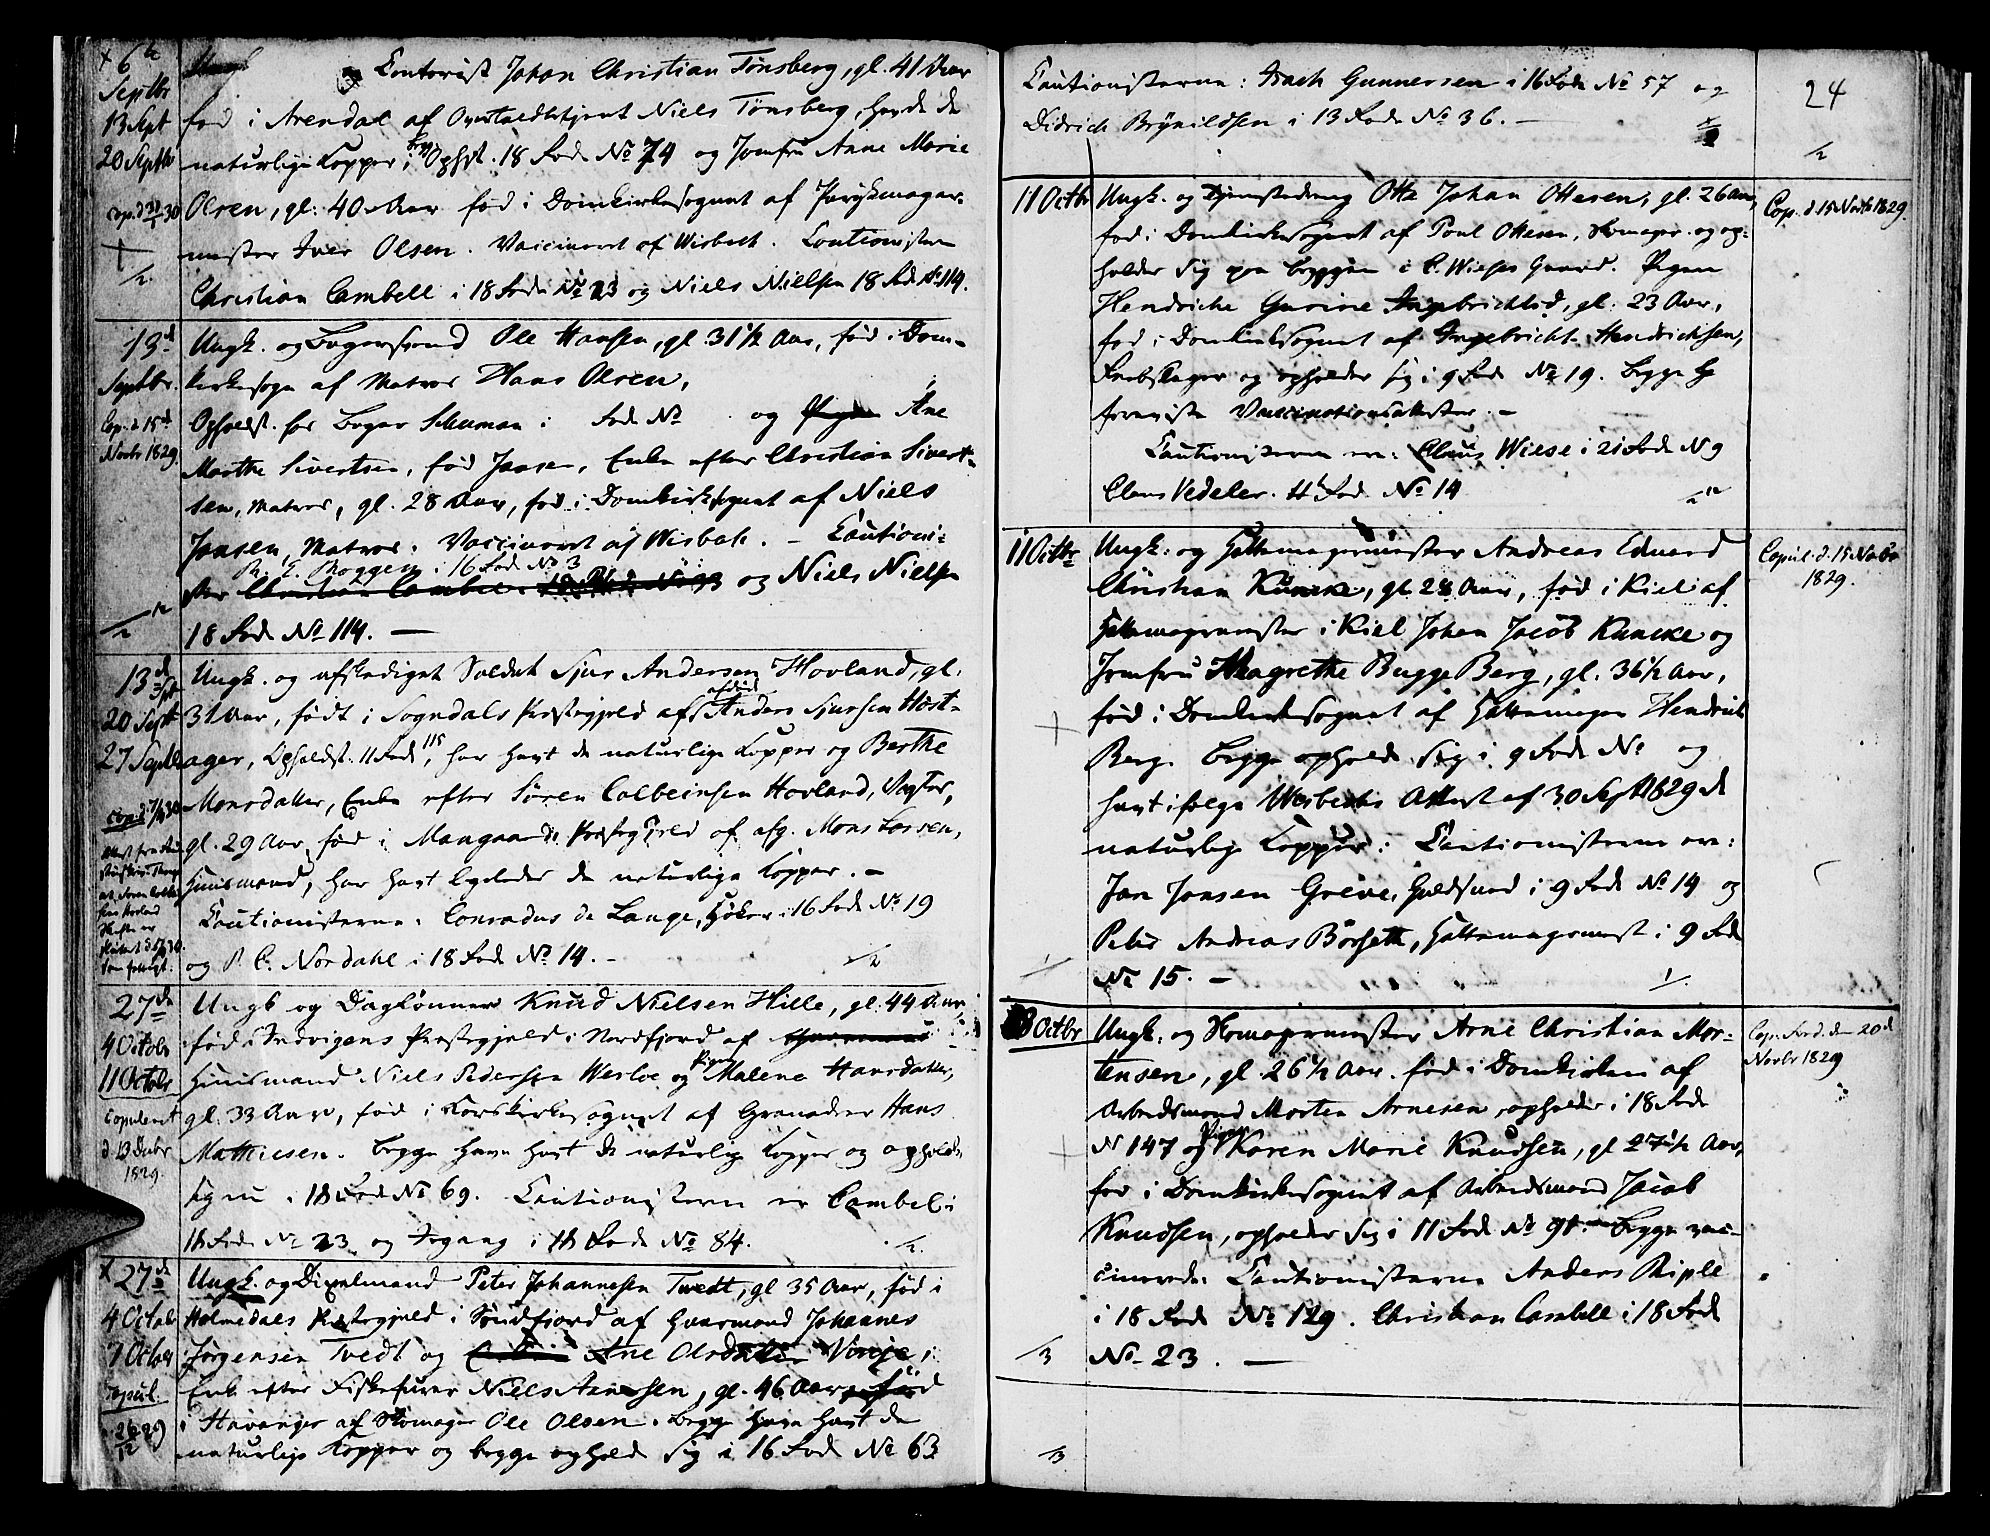 + 6te
Septbr
13 Sept
20 Septbr
Cop. d 31/1 30
Contorist Johan Christian Tønsberg, gl. 41 Aar
fød i Arendal af Overtoldbetjent Niels Tønsberg, havde de
naturlige Kopper, Opholdst. 18 Rode No 74 og Jomfru Anne Marie
Olsen, gl. 40 Aar fød i Domkirkesognet af Parykmager-
mester Iver Olsen. Vaccineret af Wisbech. Cautionistern
Christian Cambell i 18 Rode No 23 og Niels Nielsen 18 Rode No 114.
13d
Septbr.
Cop. d 15d
Novbr 1829.
Ungk. og Bagersvend Ole Hansen, gl. 31 1/2 Aar, fød i Dom-
kirkesogn af Matros Hans Olsen,
Opholdst. hos Bager Schuman i Rode No og Ane
Marthe Sivertsen, fød Jansen, Enke efter Christian Sivert-
sen, Matros, gl. 28 Aar, fød i Domkirkesognet af Niels
Jansen, Matros. Vaccineret af Wisbech. - Cautioni-
R. E. Roggen i 16 Rode No 3
ster Christian Cambel 18 Rode No 23 og Niels Nielsen
18 Rode No 114. —
13de Spt
20 Sept
27 Septbr
Cop. d
Ungk. og afskediget Soldat Sjur Andersen Hovland, gl.
31 Aar, født i Sogndals Præstegjeld af afdød Anders Sjursen Host-
ager, Opholdst. 11 Rode 115, har havt de naturlige Kopper og Berthe
Monsdatter, Enke efter Søren Colbeinsen Hovland, Vægter,
gl. 29 Aar, fød i Mangers Præstegjeld af afg. Mons Larsen,
Huusmand, har havt ligeledes de naturlige Kopper. -
Cautionisterne: Conradus de Lange, Høker i 16 Rode No 19
og P. C. Nordahl i 18 Rode No 14. -
27de
4 Octobr
11 Octobr
Copuleret
d 13 Decbr
1829.
Ungk og Daglønner Knud Nielsen Hille, gl. 44 Aar,
fød i Indvigens Præstegjeld i Nordfjord af
Huusmand Niels Pedersen Wesloe og Pigen Malene Hansdatter,
gl. 33 Aar, fød i Korskirkesognet af Granader Hans
Mathiesen. Begge have havt de naturlige Kopper og opholde
sig nu i 18 Rode No 69. Cautionistern er Cambel i
18 Rode No 23 og Fogang i 18 Rode No 84.
+ 27de
4 Octobr
7 Octbr
Copul.
26/12 29
Ungk. og Dixelmand Peter Johannesen Tvedt, gl 35 Aar, fød i
Holmedals Præstegjeld i Søndfjord af Gaardmand Johannes
Jørgensen Tvedt og Ane Olsdatter Vinje,
Enke efter Fiskefører Niels Arnesen, gl. 46 Aar, fød
i Stavanger af Skomager Ole Olsen. Begge have havt de
naturlige Kopper og begge ophold sig i 16 Rode No 63
24
Cautionisterne: Isach Gunnersen i 16 Rode No 57 og
Didrich Brynildsen i 13 Rode No 36. —
11 Octbr
Ungk. og Tjenestedreng Otto Johan Ottesen, gl. 26 Aar,
fød i Domkirkesognet af Poul Ottesen, Skomager og op-
holder sig paa Bryggen i C. Wieses Gaard. Pigen
Hendriche Gurine Ingebrichtsd, gl. 23 Aar,
fød i Domkirkesognet af Ingebricht Hendrichsen,
Snedker og opholder sig i 9 Rode No 19. Begge ha
foreviist Vaccinationsattester. -
Cautionisterne ere: Claus Wiese i 21 Rode N 9
Claus Vedeler. 11 Rod. No 14
Cop. d. 15 Novbr 1829.
11 Octbr
Ungk. og Hattemagermester Andreas Eduard
Christian Kuncke, gl. 28 Aar, fød i Kiel af
Hattemagermester i Kiel Johan Jacob Kuncke og
Jomfru Magrethe Bugge Berg, gl. 36 1/2 Aar,
fød i Domkirkesognet af Hattemager Hendrich
Berg. Begge opholde sig i 9 Rode No og
havt ifølge Wisbechs Attest af 30 Sept 1829 de
naturlige Kopper. Cautionisterne ere:
Jan Jansen Greve, Guldsmed i 9 Rode No 14 og
Peter Andreas Børseth, Hattemagermest. i 9 Rode
No 15. —
Copul. d. 15 Novbr
1829.
18 Octbr
Ungk. og Skomagermester Arne Christian Mor-
tensen, gl. 26 1/2 Aar. fød i Domkirken af
Arbeidsmand Morten Arnesen, opholder i 18 Rode
N 147 og Pigen Karen Marie Knudsen, gl 27 1/2 Aar,
fød i Domkirkesognet af Arbeidsmand Jacob
Knudsen, opholder sig i 11 Rode No 91. Begge vac-
cinerede. Cautionisterne Anders Riple
i 18 Rode No 129. Christian Cambell i 18 Rode
No 23. —
Cop. Fred. den 20d
Novbr 1829